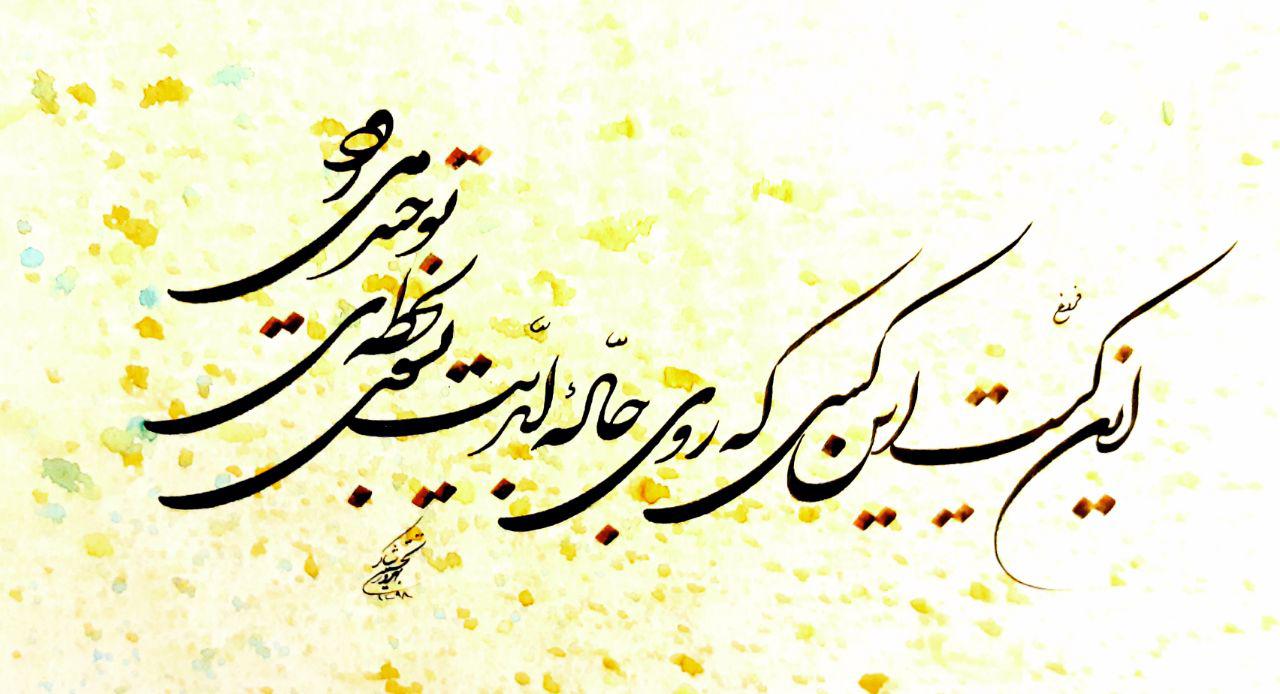 فروغ
این کیست این کسی که روی جادّهٔ ابدیّت بسوی لحظه‌ی توحید می‌رود